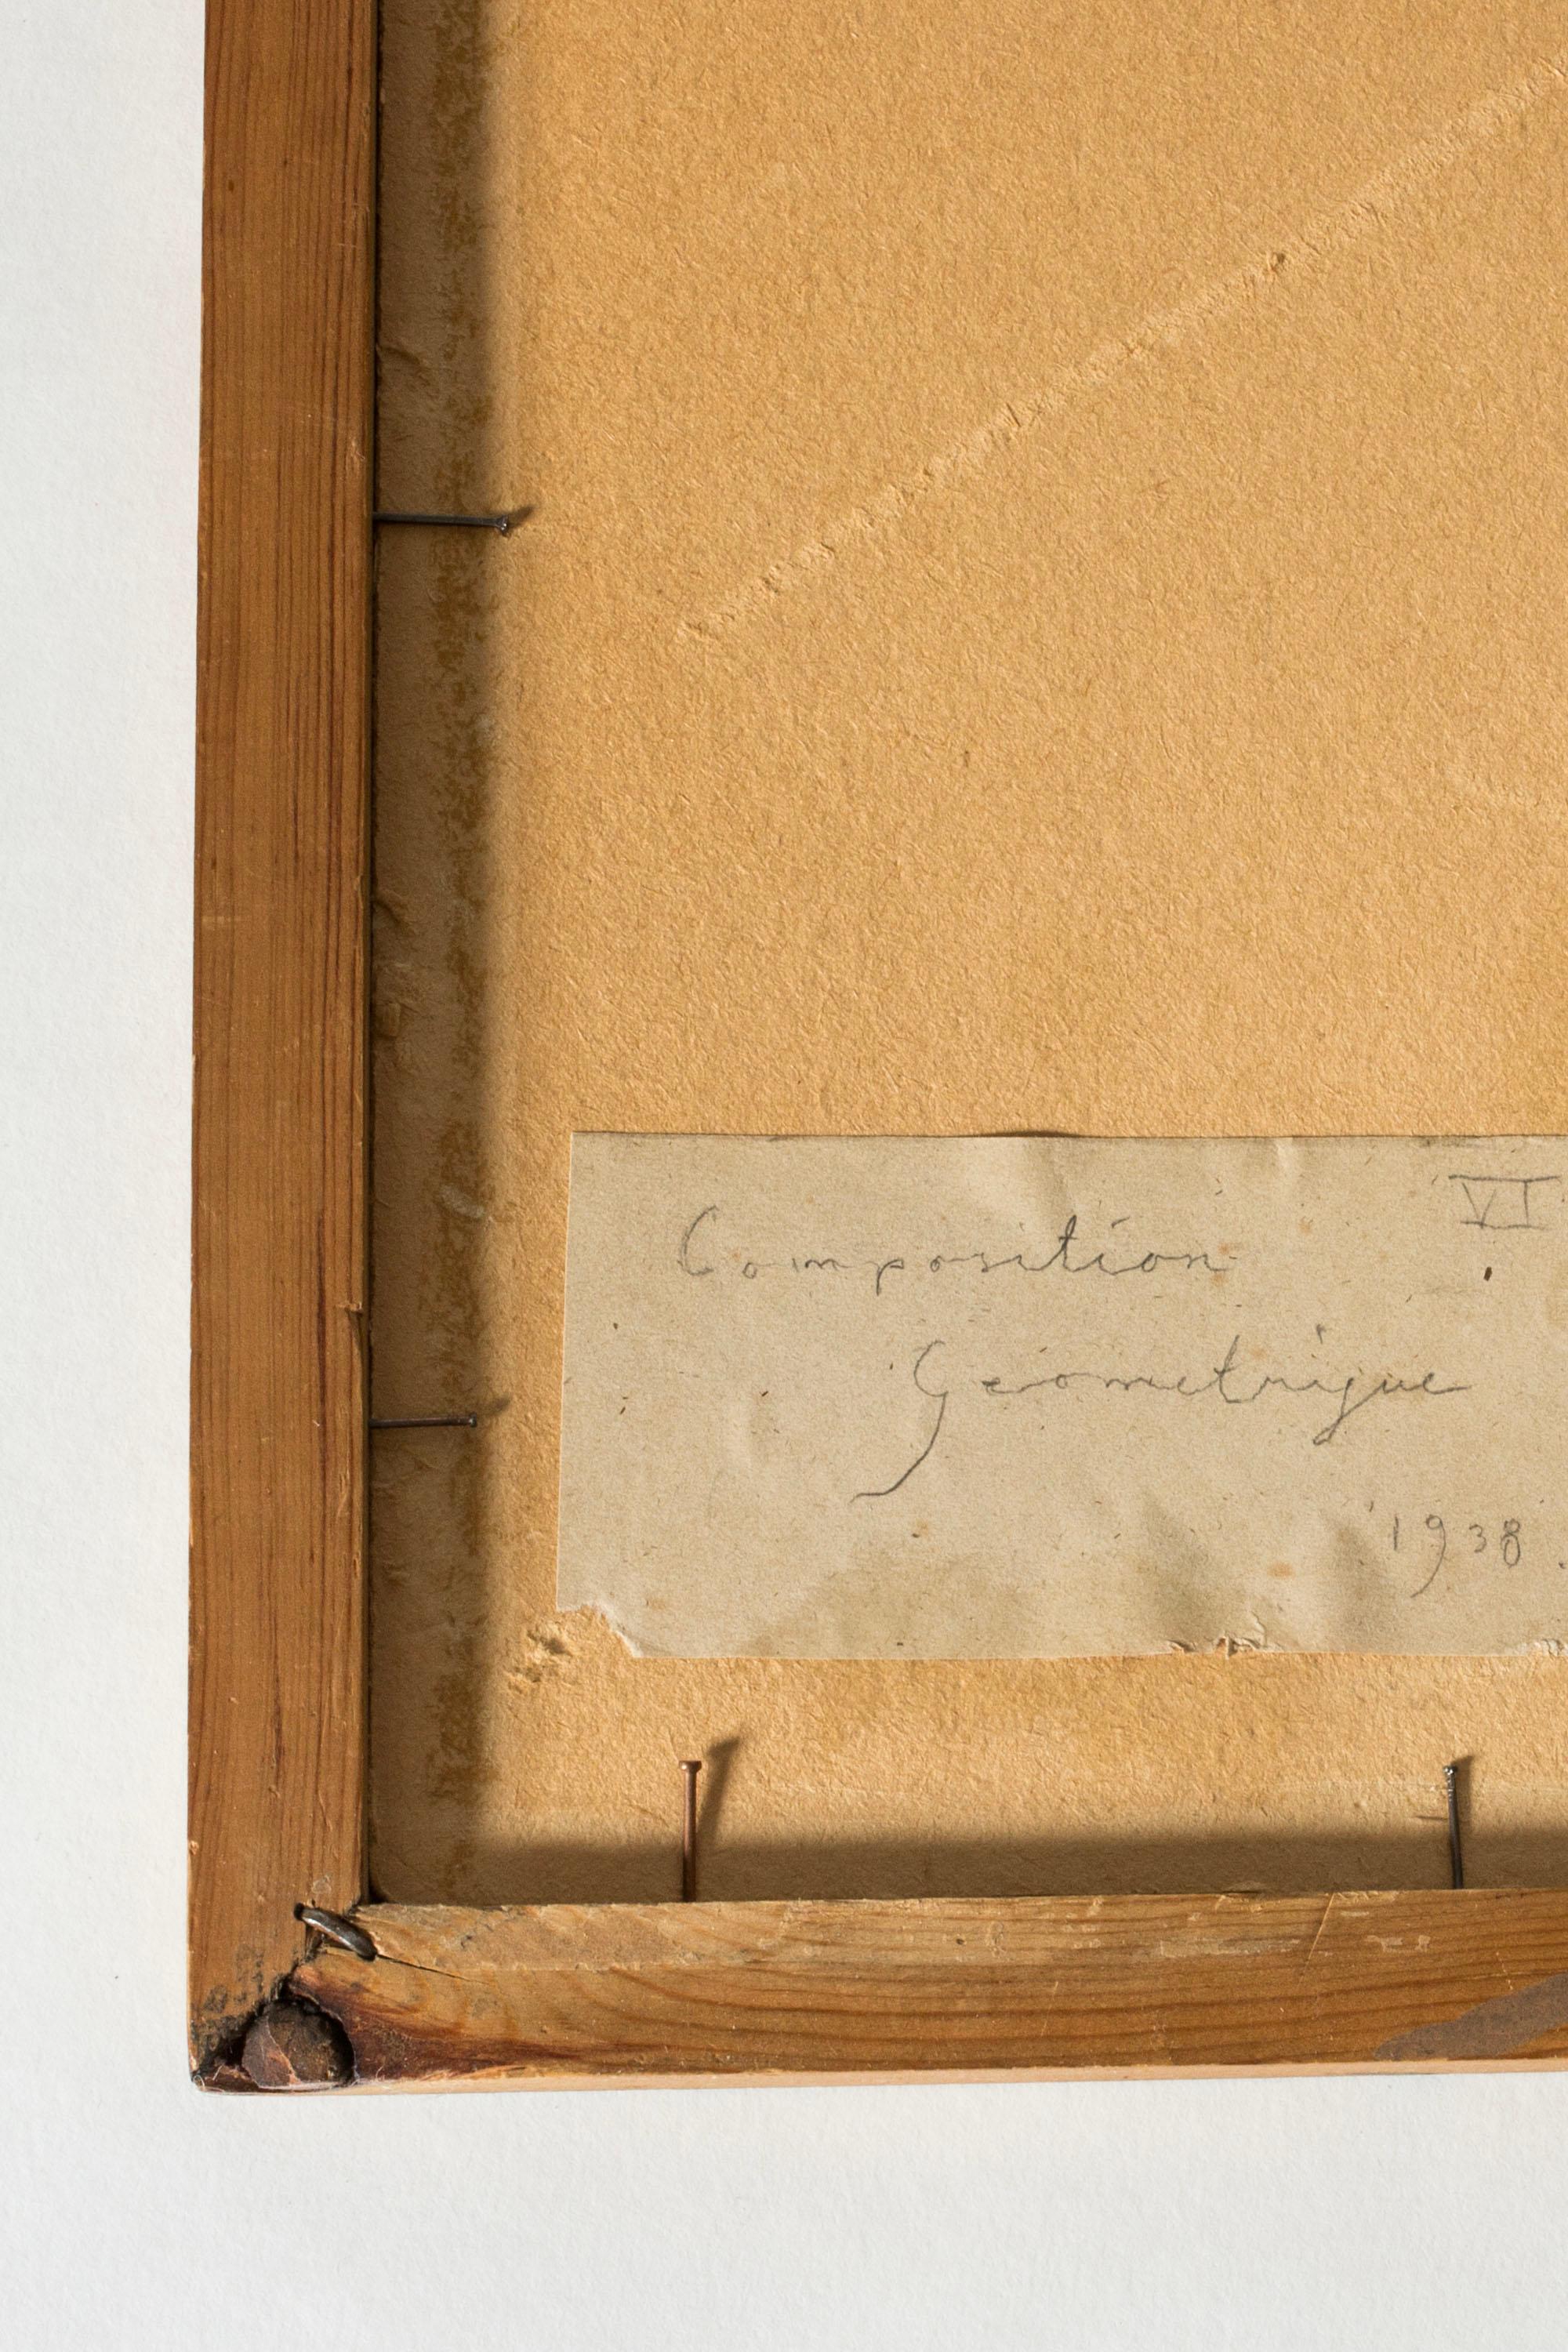 VI
Composition
Géometrique
1938.